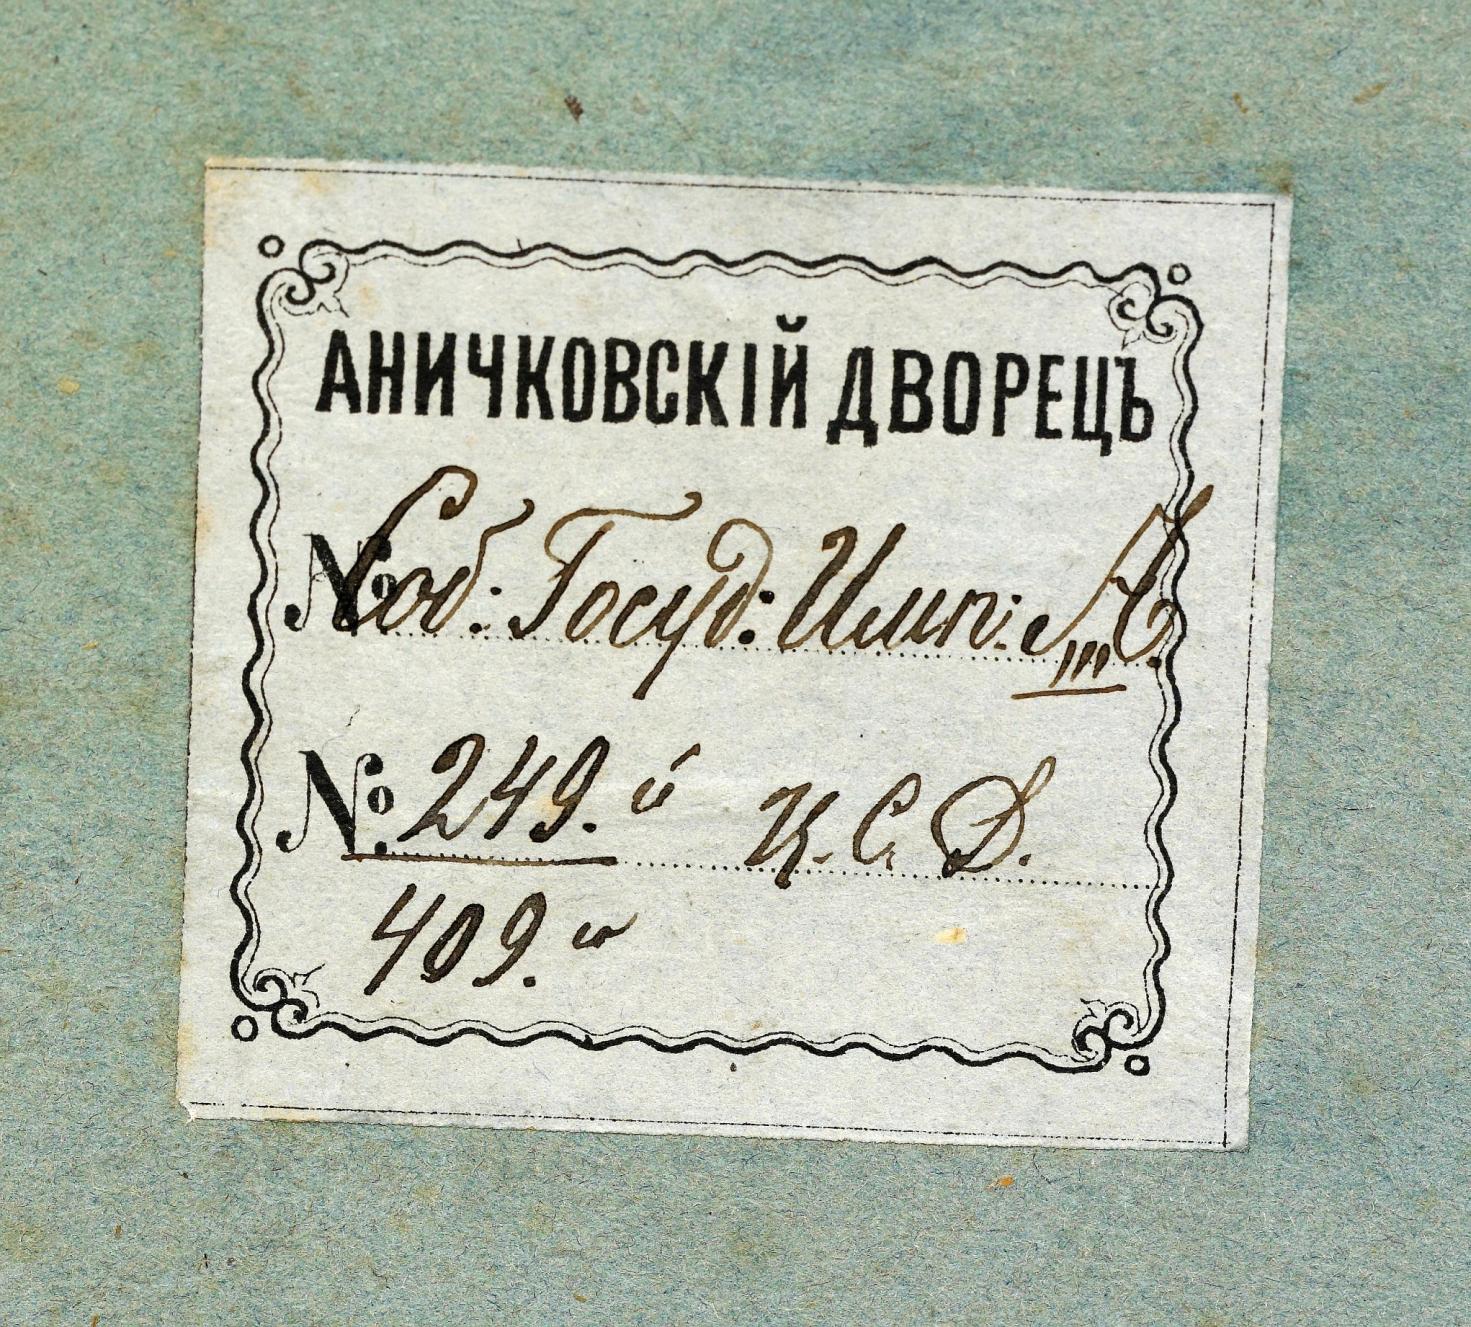 АНИЧКОВСКІЙ ДВОРЕЦЪ
№ Соб: Госуд: Имп: А III.
№. 249.й К. С. Д.
409.й